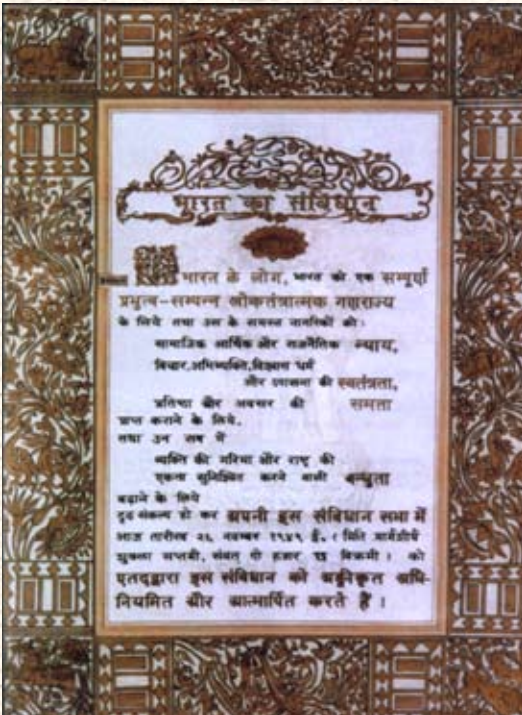 भारत का संविधान
भारत के लोग, भारत को एक सम्पूर्ण
प्रभुत्व-सम्पन्न लोकतंत्रात्मक गणराज्य
के लिये तथा उस के समस्त नागरिकों को:
सामाजिक आर्थिक और राजनैतिक न्याय,
विचार, अभिव्यक्ति, विश्वास धर्म
और उपासना की स्वतंत्रता,
प्रतिष्ठा और अवसर की समता
प्राप्त कराने के लिये,
तथा उन सब में
व्यक्ति की गरिमा और राष्ट्र की
एकता सुनिश्चित करने वाली बन्धुता
बढ़ाने के लिये
दृढ़ संकल्प हो कर अपनी इस संविधान सभा में
आज तारीख २६ नवम्बर १९४९ ई. (मिति मार्गशीर्ष
शुक्ला सप्तमी, संवत् दो हजार छः विक्रमी) को
एतद्द्वारा इस संविधान को अङ्गीकृत अधि-
नियमित और आत्मार्पित करते हैं।